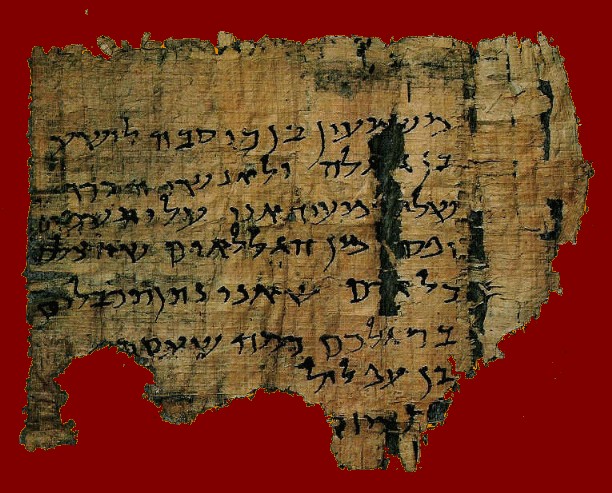 משמעון בן כוסבה לישע
בן גלגלה ולאנשי הכרך
שלו מעיד אני עלי תשמים
יפס מן הגללאים שהצלכם
כל אדם שאני נתן תכבלים
ברגלכם כמה שעסת
לבן עפלול